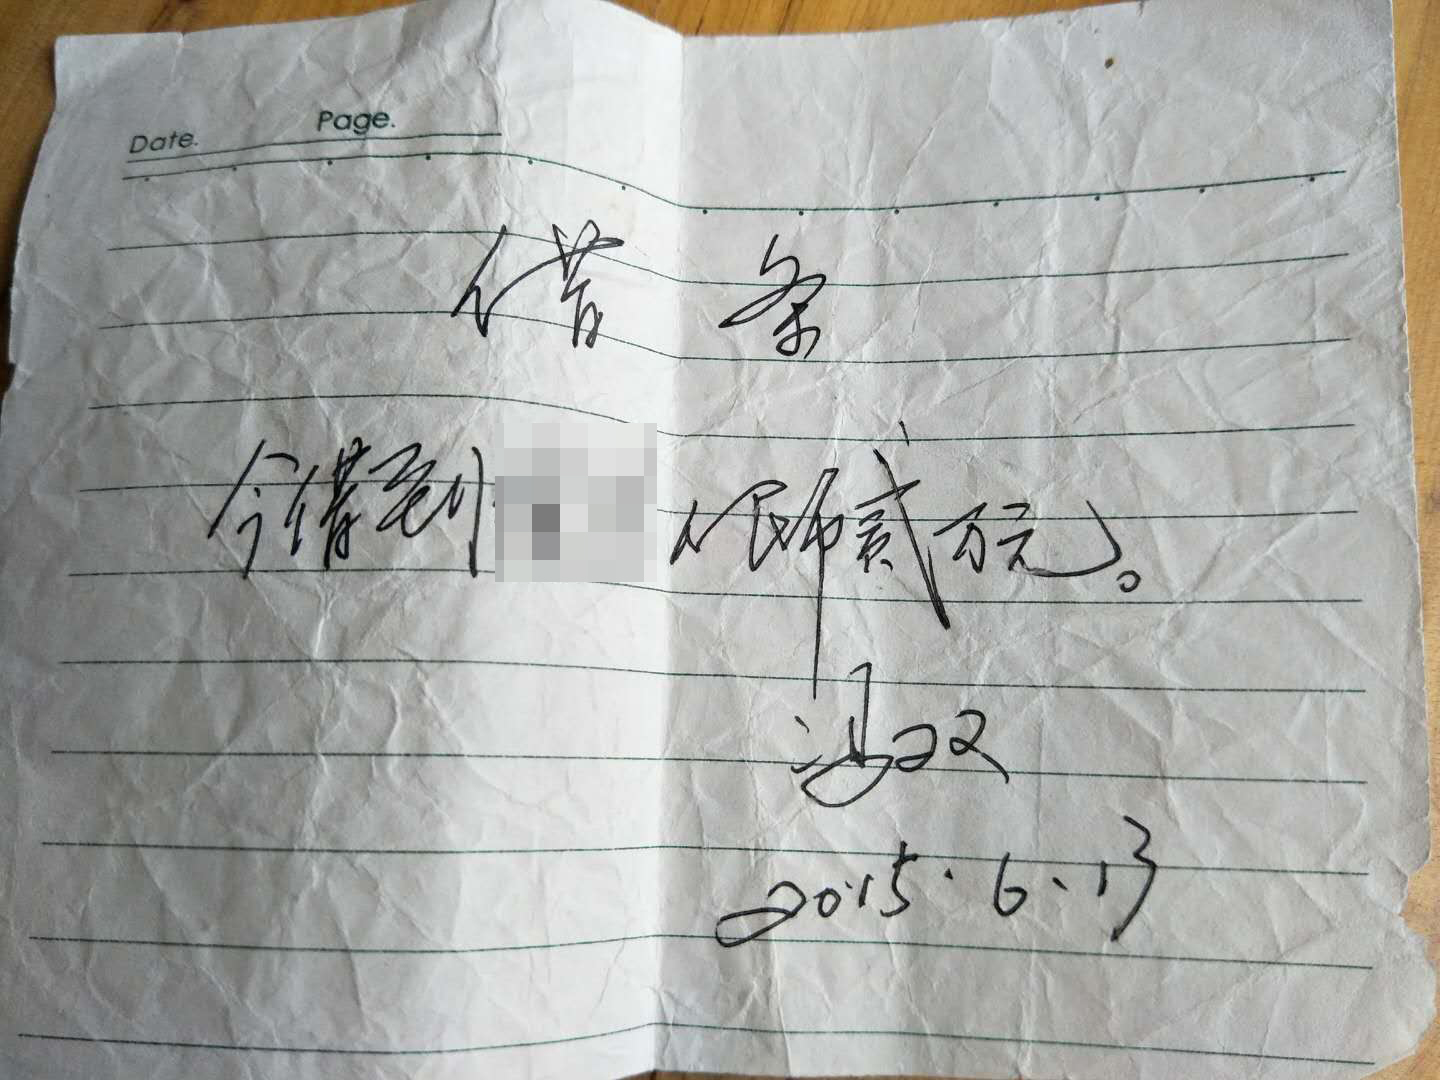 Date. Page.
借条
今借到 人民币贰万元。
冯双
2015.6.13